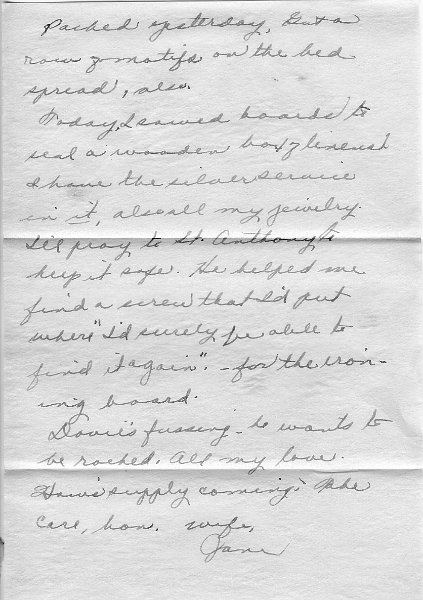 Packed yesterday, Put a
row of motifs on the bed
spread, also.
Today, I sawed boards to
seal a wooden box of linens
I have the silver service
in it, also all my jewelry.
I'll pray to St. Anthony to
keep it safe. He helped me
find a screw that I'd put
where "I'd surely be able to
find it again". - for the iron-
ing board.
Davie's fussing - he wants to
be rocked. All my love.
How's supply coming? Take
care, hon. wife,
Jane